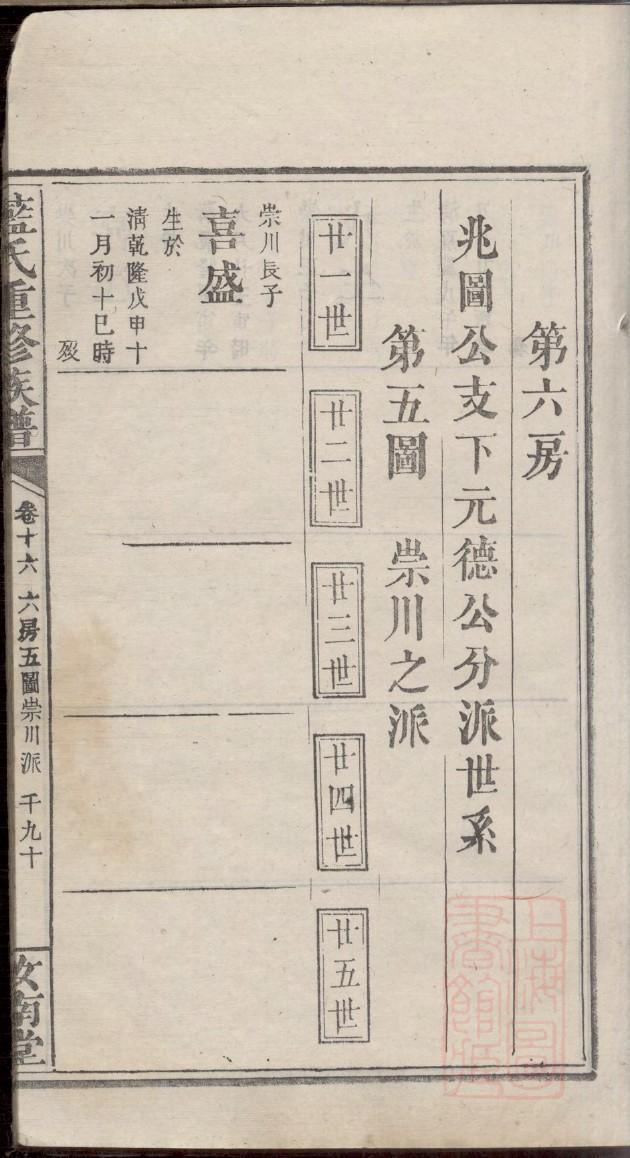 第六房
兆圖公支下元德公分派世系
第五圖　崇川之派
廿一世
廿二世
廿三世
廿四世
廿五世
崇川長子
喜盛
生於
清乾隆戊申十
一月初十巳時
歿
藍氏重修族譜
卷十六　六房五圖崇川派　千九十
汝南堂
上海圖書館藏